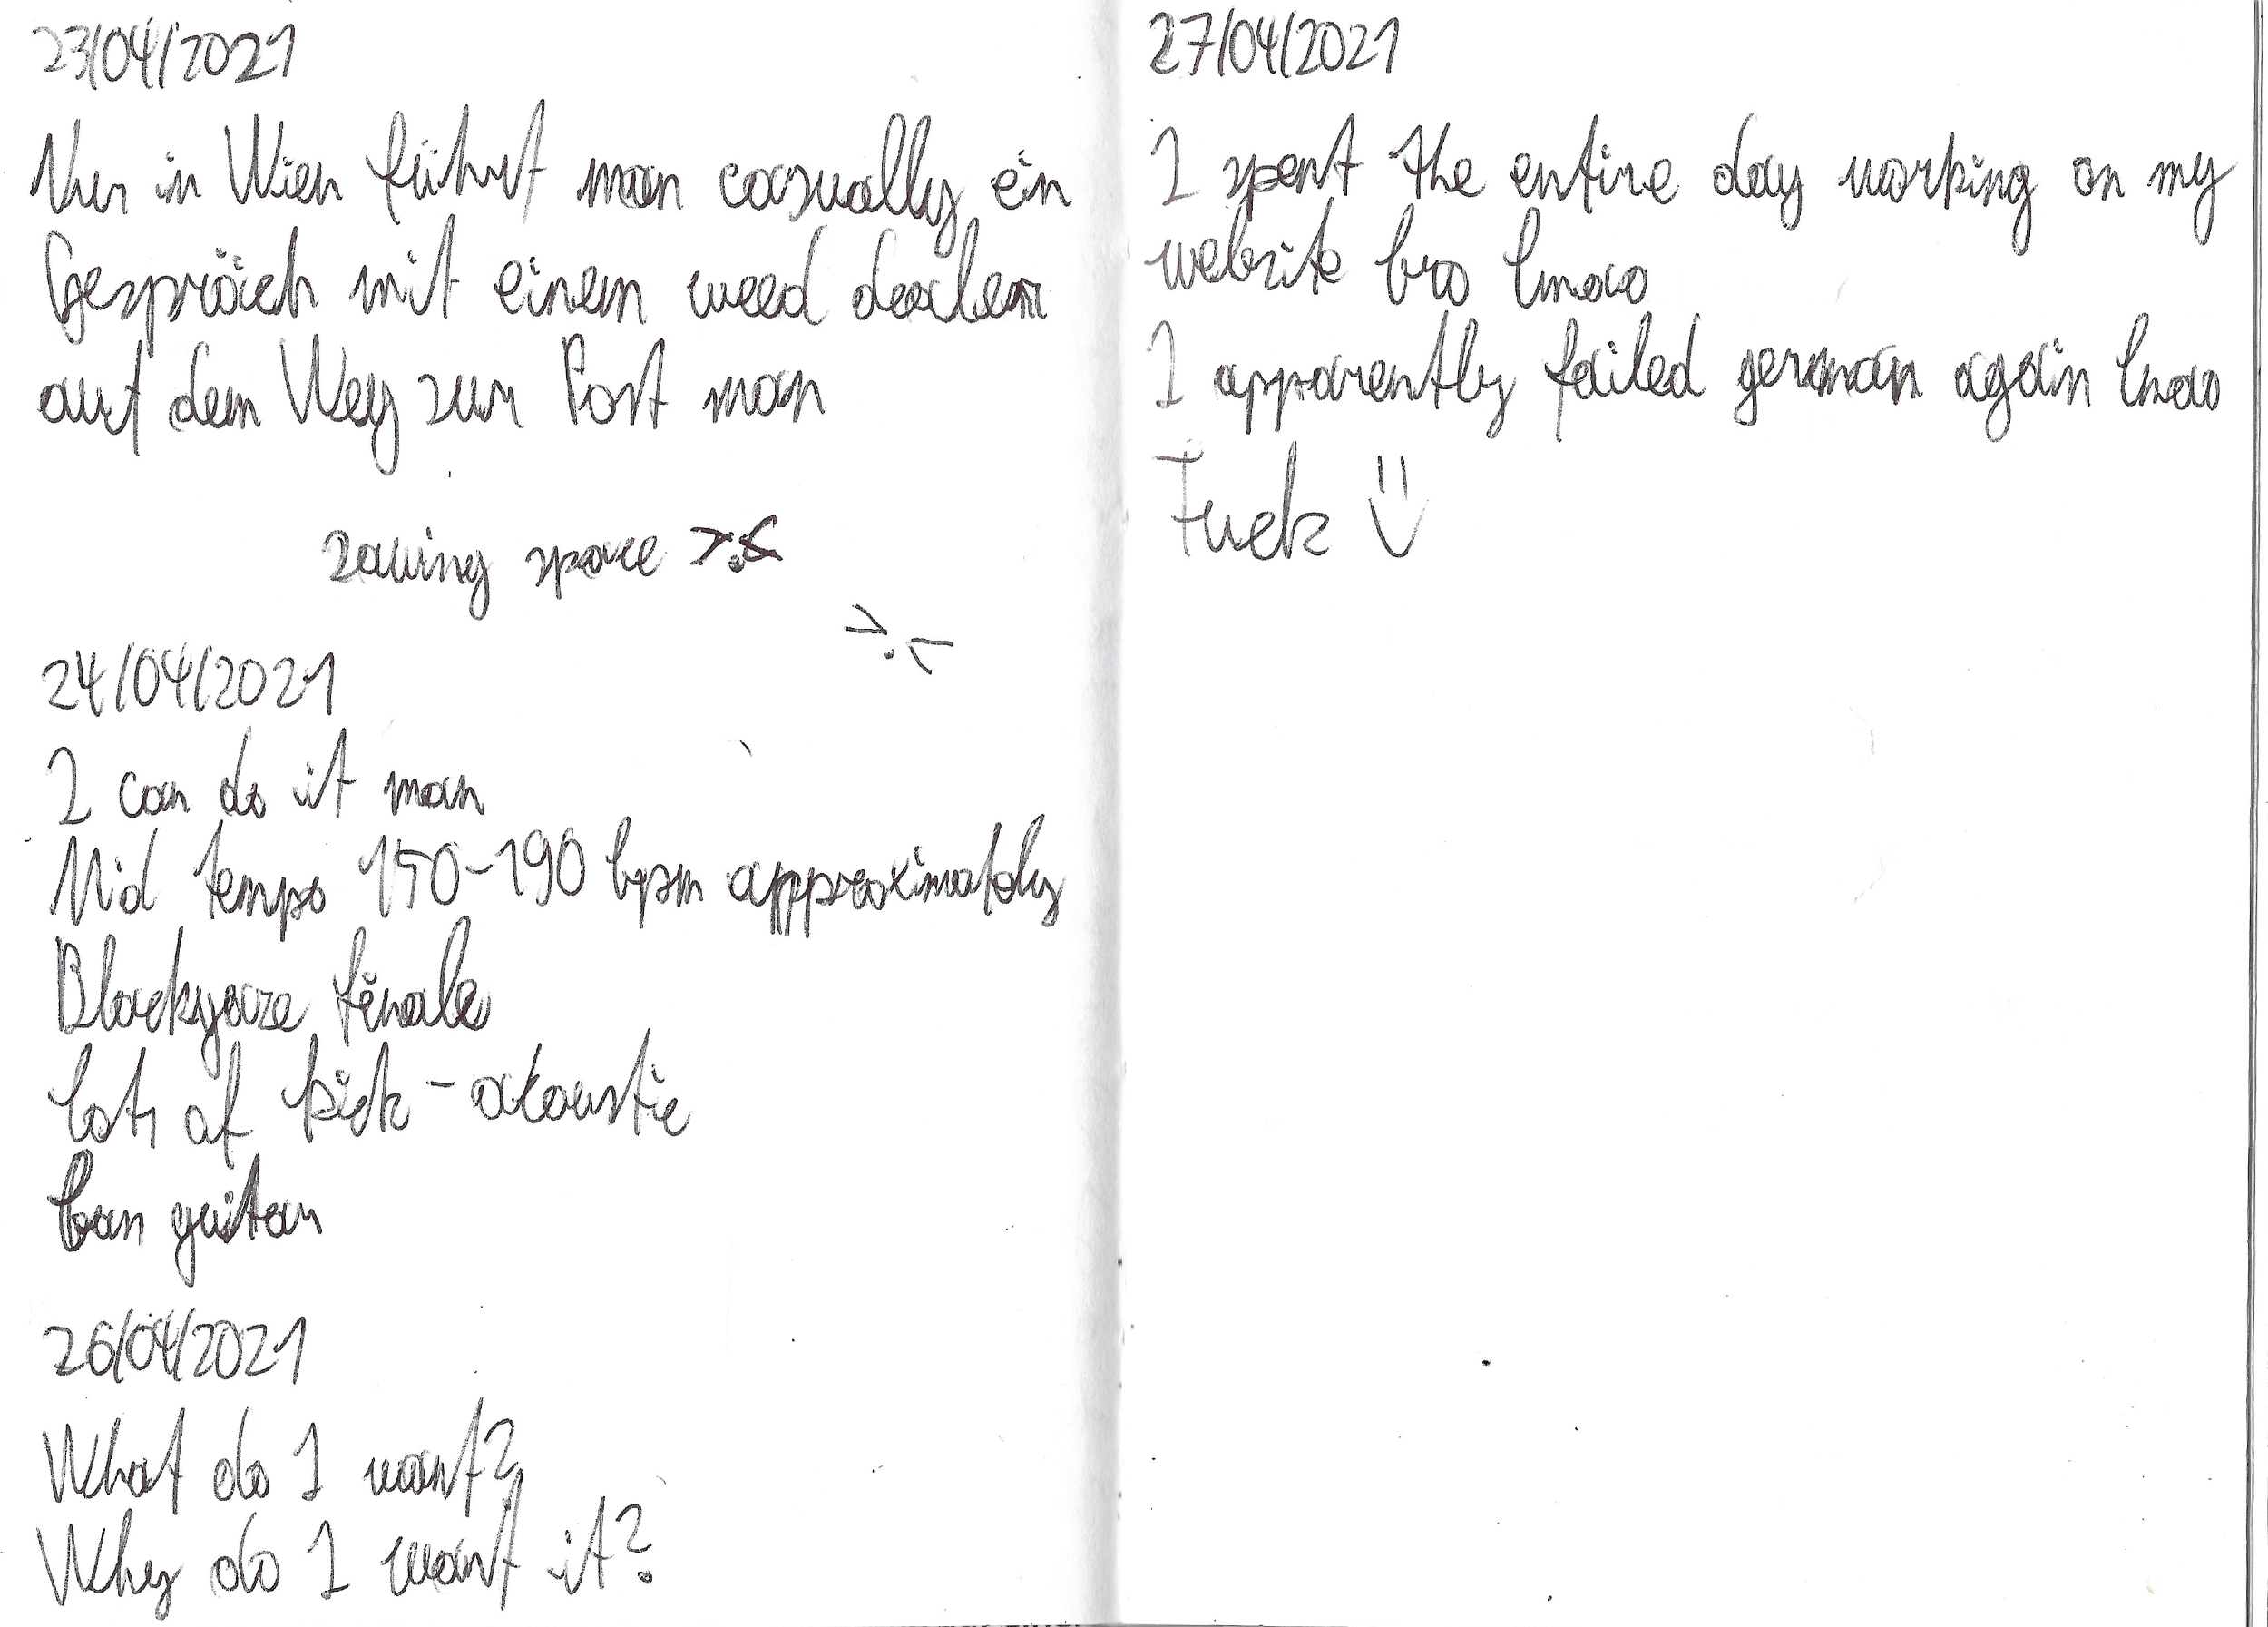 23/04/2021
Nur in Wien führt man casually ein
Gespräch mit einem weed dealer
auf dem Weg zur Post man
saving space >.<
>.<
24/04/2021
I can do it man
Mid tempo 150-190 bpm approximately
Blackgaze finale
lots of kick - akoustic
ban guitar
26/04/2021
What do I want?
Why do I want it?
27/04/2021
I spent the entire day working on my
website bro lmao
I apparently failed german again lmao
Fuck :)